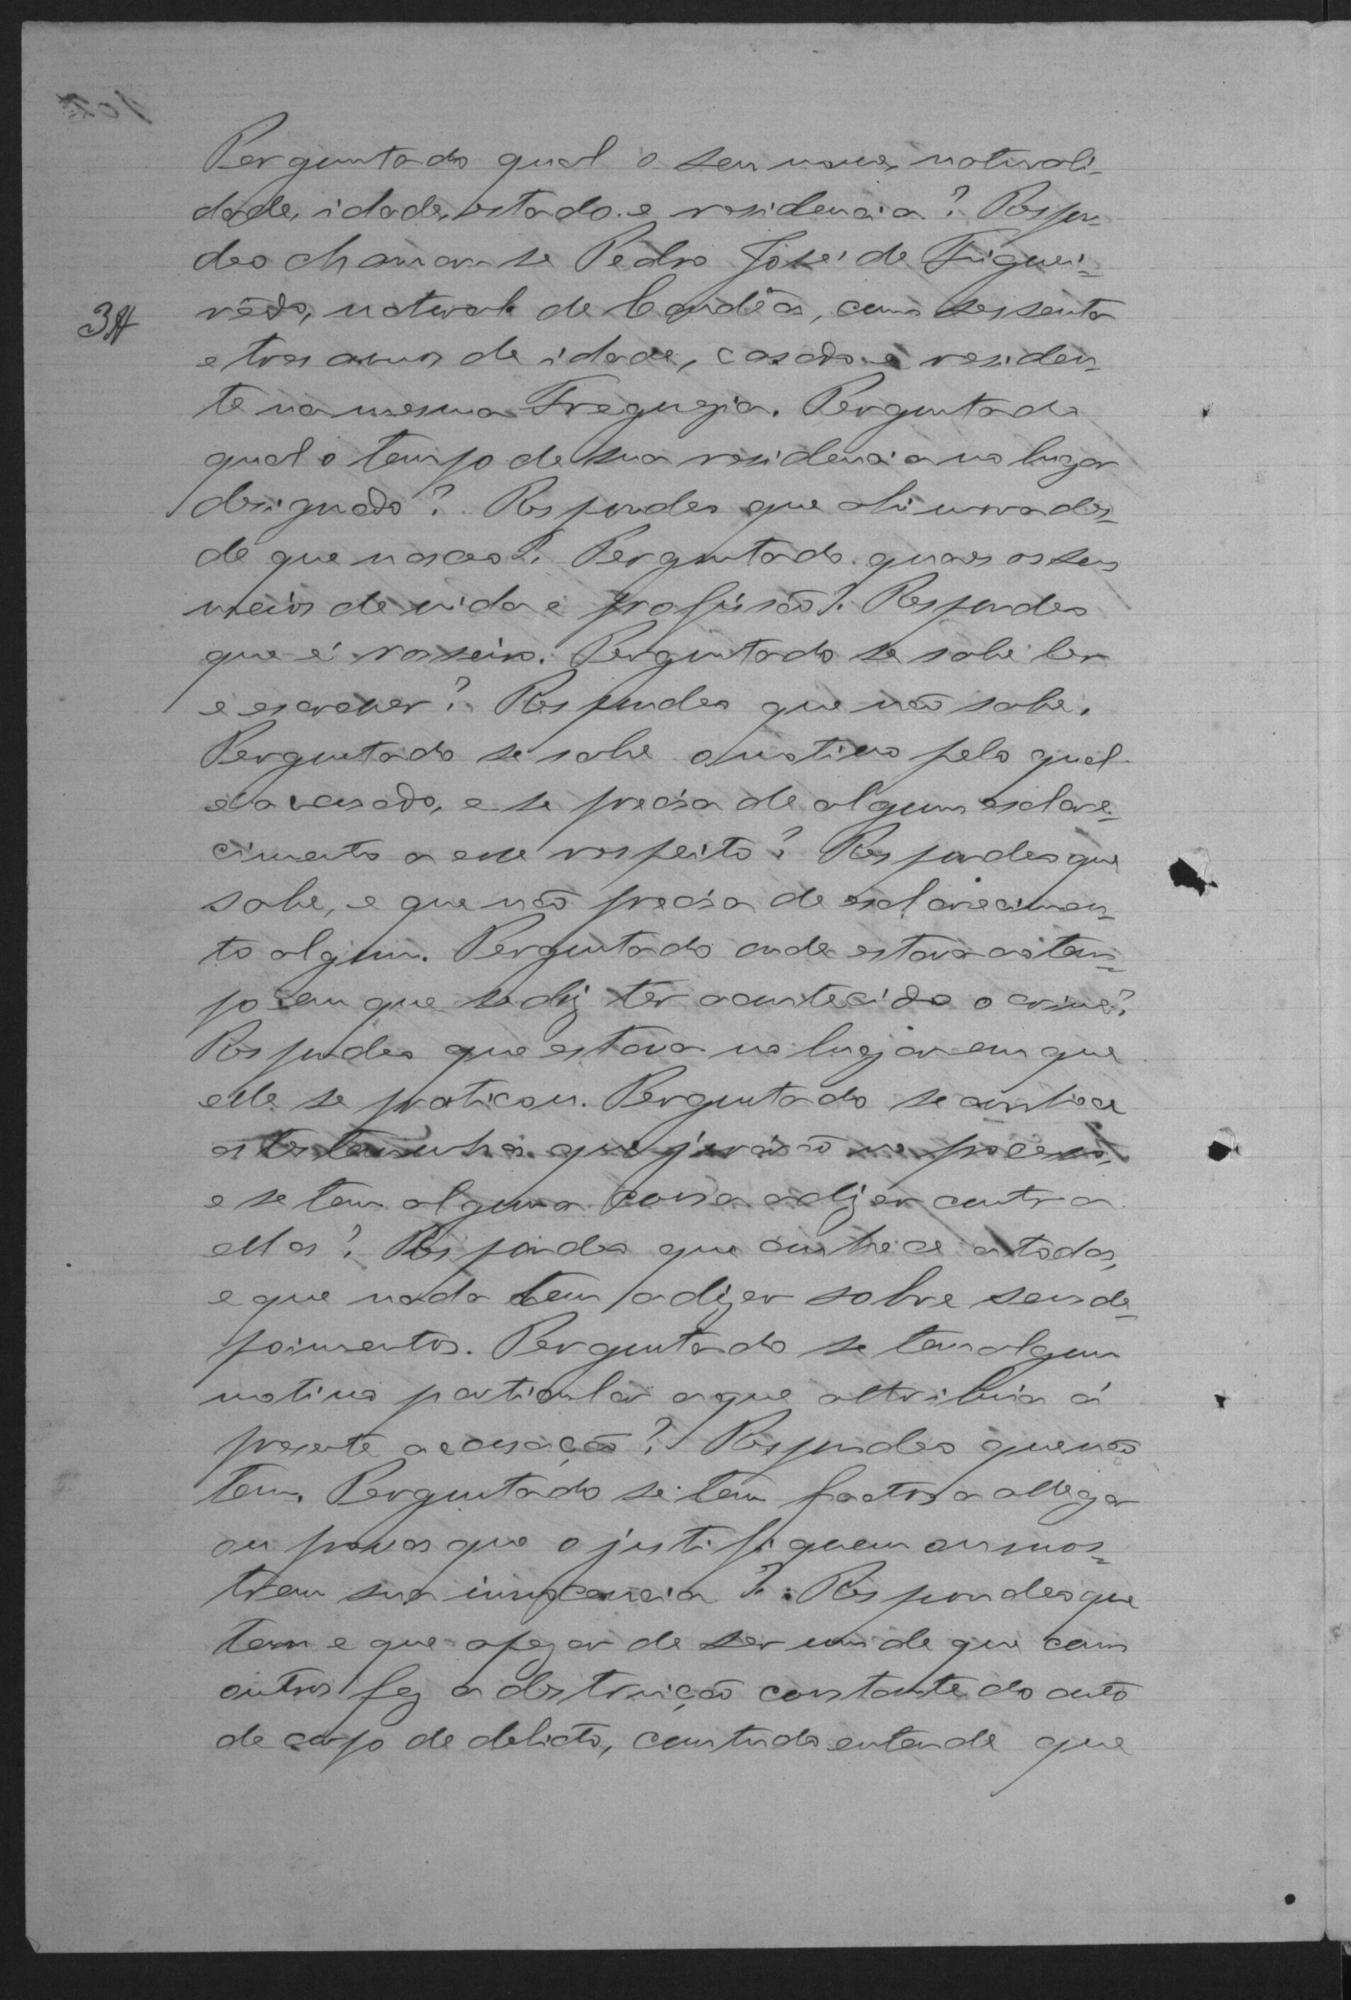 Perguntado qual o seu nome, naturali-
dade, idade, estado e residencia? Respon-
deo chamar-se Pedro José de Figuei-
rêdo, natural de Candêas, com sessenta
e tres annos de idade, casado e residen-
te na mesma Freguezia. Perguntado
qual o tempo de sua residencia no lugar
designado? Respondeo que ahi mora des-
de que nasceo. Perguntado quaes os seus
meios de vida e profissão? Respondeo
que é roceiro. Perguntado se sabe ler
e escrever? Respondeo que não sabe.
Perguntado se sabe o motivo pelo qual
é accusado, e se precisa de algum esclare-
cimento a esse respeito? Respondeo que
sabe, e que não precisa de esclarecimen-
to algum. Perguntado onde estava ao tem-
po em que se diz ter acontecido o crime?
Respondeo que estava no lugar em que
elle se praticou. Perguntado se conhece
as testemunhas que jurarão no processo,
e se tem alguma cousa a dizer contra
ellas? Respondeo que conhece a todas,
e que nada tem a dizer sobre seus de-
poimentos. Perguntado se tem algum
motivo particular a que attribua á
presente accusação? Respondeo que não
tem. Perguntado se tem factos a allegar
ou provas que o justifiquem ou mos-
trem sua innocencia? Respondeo que
tem e que apezar de ser um de que com
outros fez a destruição constante do auto
de corpo de delicto, comtudo entende que